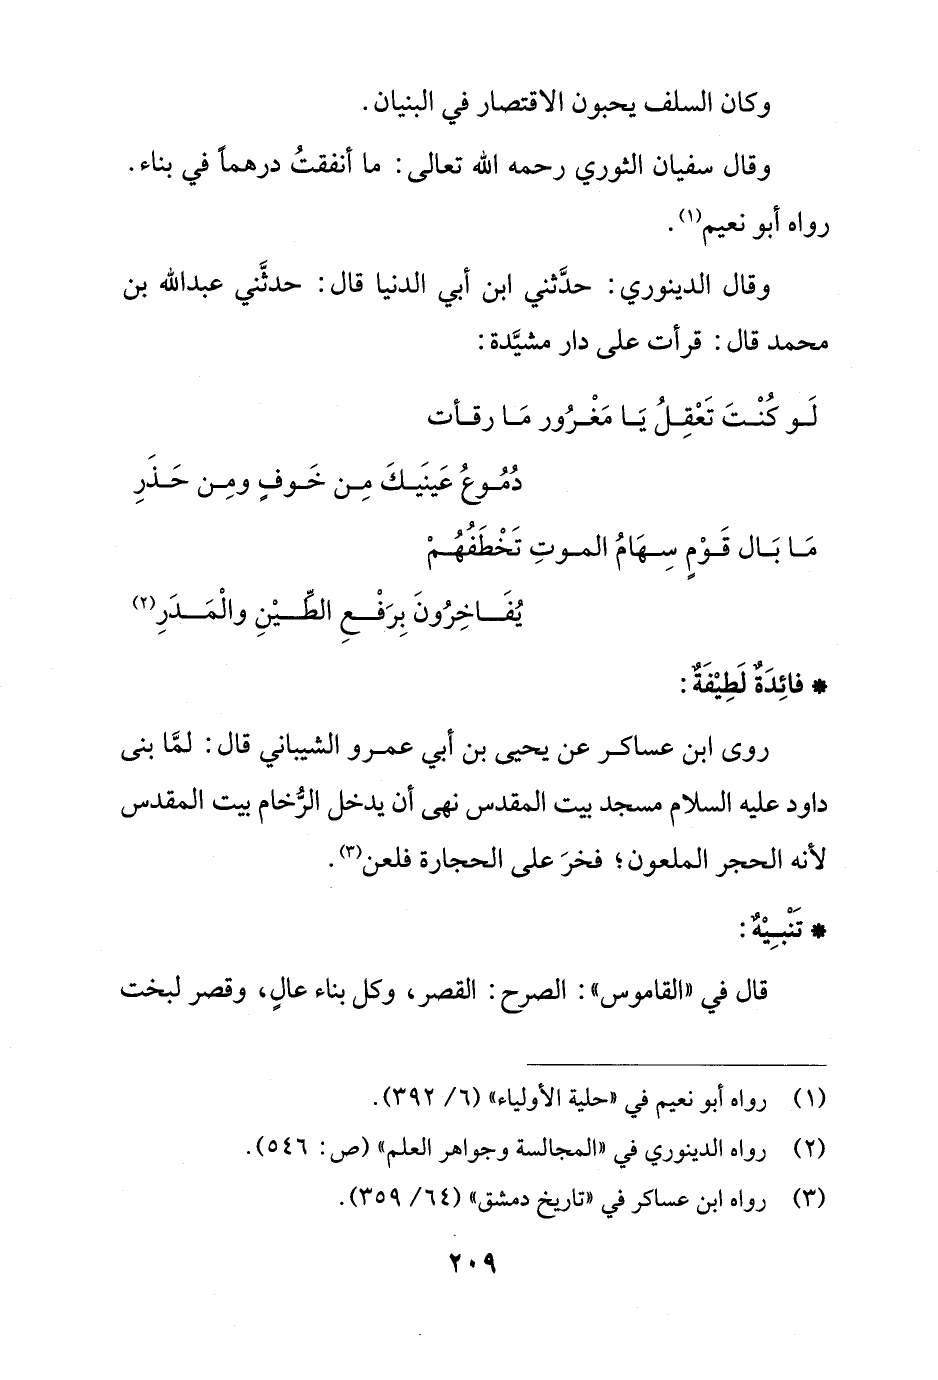 وكان السلف يحبون الاقتصار في البنيان.
وقال سفيان الثوري رحمه الله تعالى: ما أنفقتُ درهماً في بناء.
رواه أبو نعيم(١).
وقال الدينوري: حدَّثني ابن أبي الدنيا قال: حدثَّني عبدالله بن
محمد قال: قرأت على دار مشيَّدة:
لَو كُنْتَ تَعْقِلُ يَا مَغْرُور مَا رقأت
دُمُوعُ عَينَيكَ مِن خَوفٍ ومِن حَذَرِ
مَا بَال قَوْمٍ سِهَامُ الموتِ تَخْطَفُهُمْ
يُفَاخِرُونَ بِرَفْعِ الطِّيْنِ والْمَدَرِ(٢)
* فائِدَةٌ لَطِيْفَةٌ:
روى ابن عساكر عن يحيى بن أبي عمرو الشيباني قال: لمَّا بنى
داود عليه السلام مسجد بيت المقدس نهى أن يدخل الرُّخام بيت المقدس
لأنه الحجر الملعون؛ فخرَ على الحجارة فلعن(٣).
* تَنْبِيْهٌ:
قال في «القاموس»: الصرح: القصر، وكل بناء عالٍ، وقصر لبخت
(١) رواه أبو نعيم في «حلية الأولياء» (٦/ ٣٩٢).
(٢) رواه الدينوري في «المجالسة وجواهر العلم» (ص: ٥٤٦).
(٣) رواه ابن عساكر في «تاريخ دمشق» (٦٤/ ٣٥٩).
٢٠٩